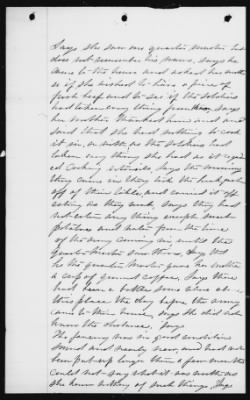 Says she saw one quarter master but
does not remember his name, says he
came to the house and asked her mother
if she wished to have a piece of
fresh beef and to see if the soldiers
had taken any thing from them, says
her mother thanked him and
said that she had nothing to cook
it in, or with as the soldiers had
taken every thing she had as it required
cooking utensils. Says the morning
they came in they took the
off of their table, and carried it off
eating as they went, says they had
not eaten any thing except sweet
potatoes and water from the time
of the army coming in until the
quarter master came there, Says that
he the quarter master gave her mother
a cup of ground coffee, Says there
had been a battle some where above
this place the day before the army
came to their house, says she did not
know the distance, Says
The fencing was in good condition
sound and nearly new, and had not
been put up longer than a few months
could not say what it was worth as
she knew nothing of such things, Says